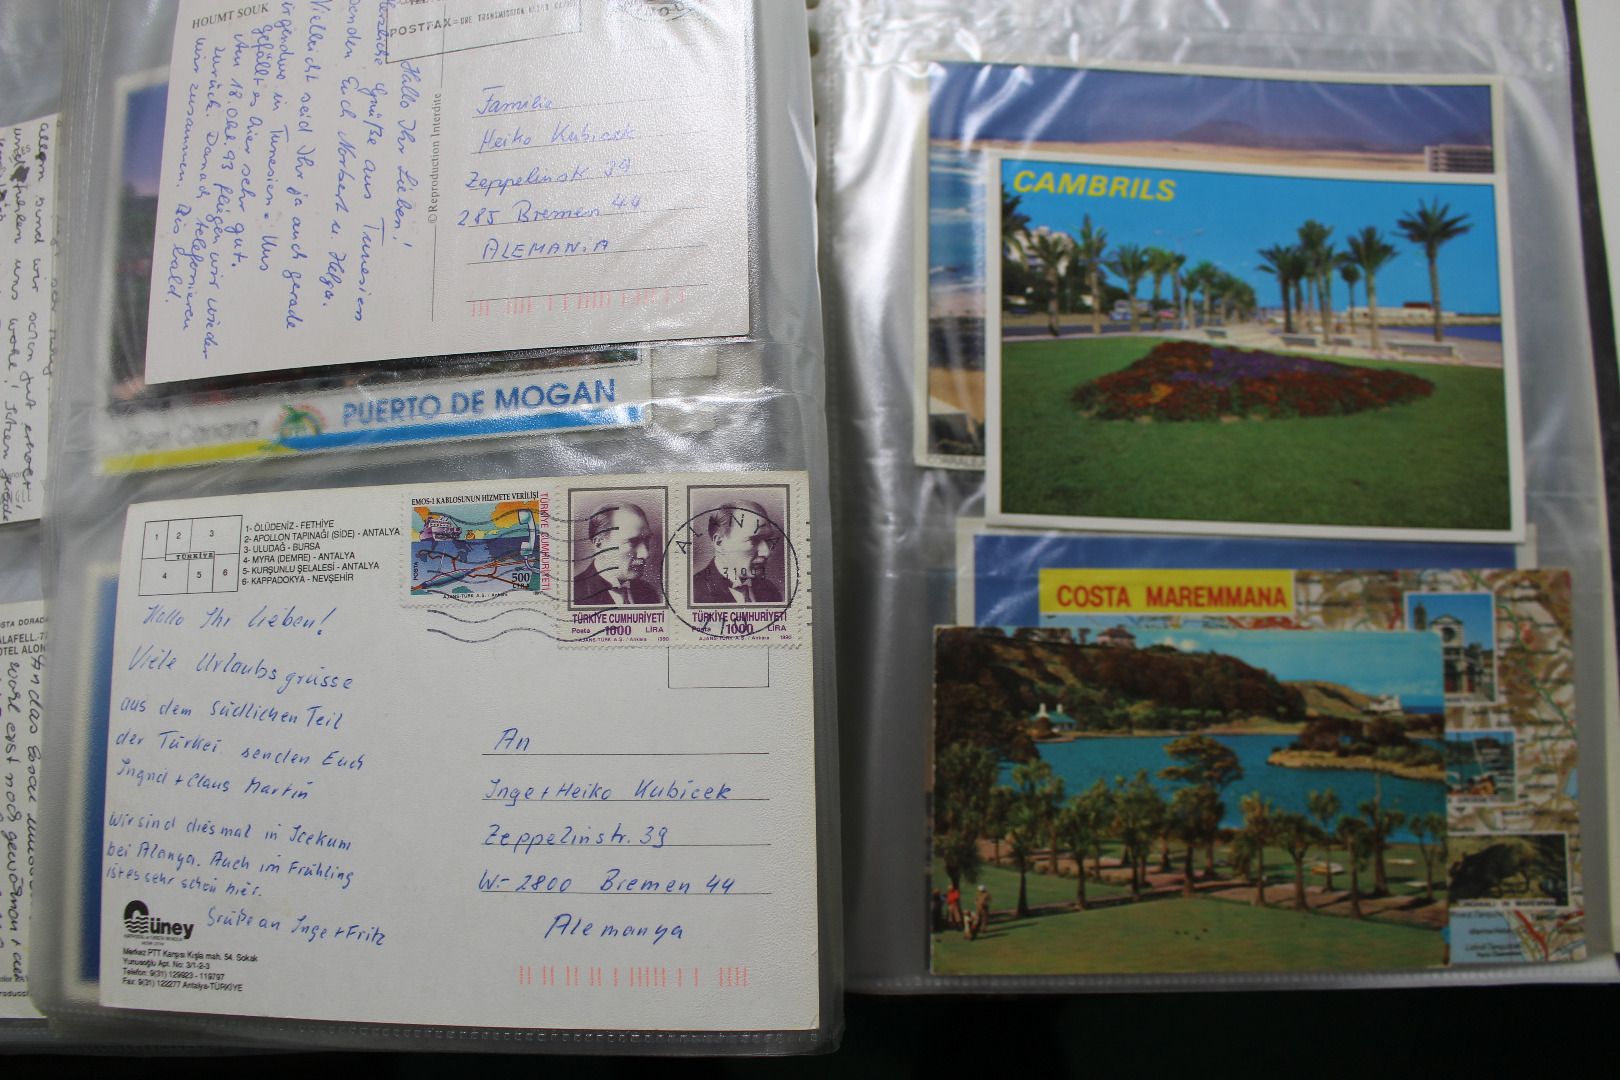 HOUMT SOUK
POSTFAX
Hallo Ihr Lieben!
Herzliche Grüße aus Tunesien
senden Euch Norbert u. Helga.
Vielleicht seid Ihr ja auch gerade
irgendwo in Tunesien. Uns
gefällt es hier sehr gut.
Am 18.Okt.93 fliegen wir wieder
zurück. Danach telefonieren
wir zusammen. Bis bald.
© Reproduction Interdite
Familie
Heiko Kubicek
Zeppelinstr. 39
285 Bremen 44
ALEMAN.A
Gran Canaria
PUERTO DE MOGAN
1- ÖLÜDENİZ - FETHİYE
2- APOLLON TAPINAĞI (SİDE) - ANTALYA
3- ULUDAĞ - BURSA
4- MYRA (DEMRE) - ANTALYA
5- KURŞUNLU ŞELALESİ - ANTALYA
6- KAPPADOKYA - NEVŞEHİR
1 2 3
TÜRKİYE
4 5 6
EMOS-1 KABLOSUNUN HİZMETE VERİLİŞİ
TÜRKİYE CUMHURİYETİ
POSTA
500
LİRA
AJANS-TÜRK A.Ş. / Ankara
TÜRKİYE CUMHURİYETİ
Posta 1000 LİRA
AJANS-TÜRK A.Ş. / Ankara 1990
TÜRKİYE CUMHURİYETİ
Posta 1000 LİRA
AJANS-TÜRK A.Ş. / Ankara 1990
Hallo Ihr Lieben!
Viele Urlaubsgrüsse
aus dem südlichen Teil
der Türkei senden Euch
Ingrid + Claus Martin
Wir sind diesmal in Icekum
bei Alanya. Auch im Frühling
ist es sehr schön hier.
Grüße an Inge + Fritz
An
Inge + Heiko Kubicek
Zeppelinstr. 39
W-2800 Bremen 44
Alemanya
Güney
Merkez PTT Karşısı Kışla mah. 54. Sokak
Yunusoğlu Apt. No: 3/1-2-3
Telefon: 9(31) 129923 - 119797
Fax: 9(31) 122277 Antalya-TÜRKİYE
CAMBRILS
COSTA MAREMMANA